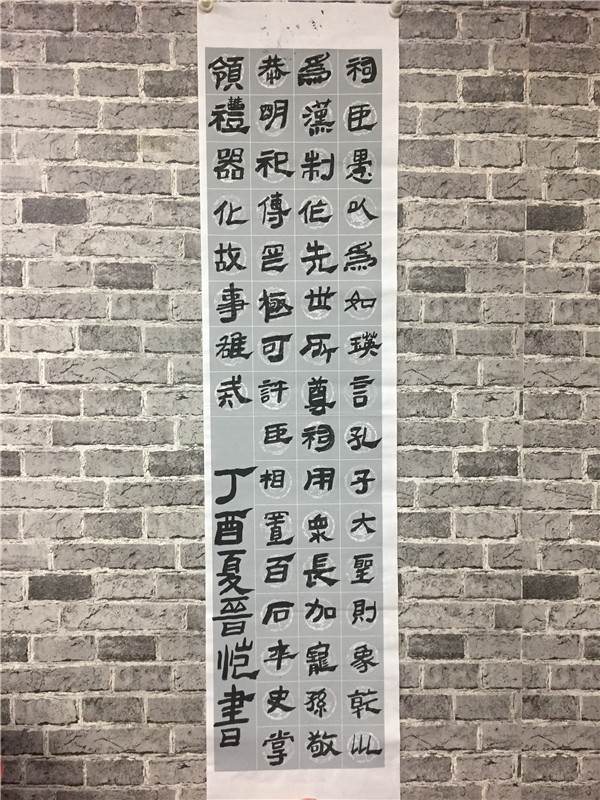 祠臣愚以爲如瑛言孔子大聖則象乾川
爲漢制作先世所尊祠用衆長加寵孫敬
恭明祀傳罔極可許臣相置百石卒史掌
領禮器化故事雄戒
丁酉夏晉恺書